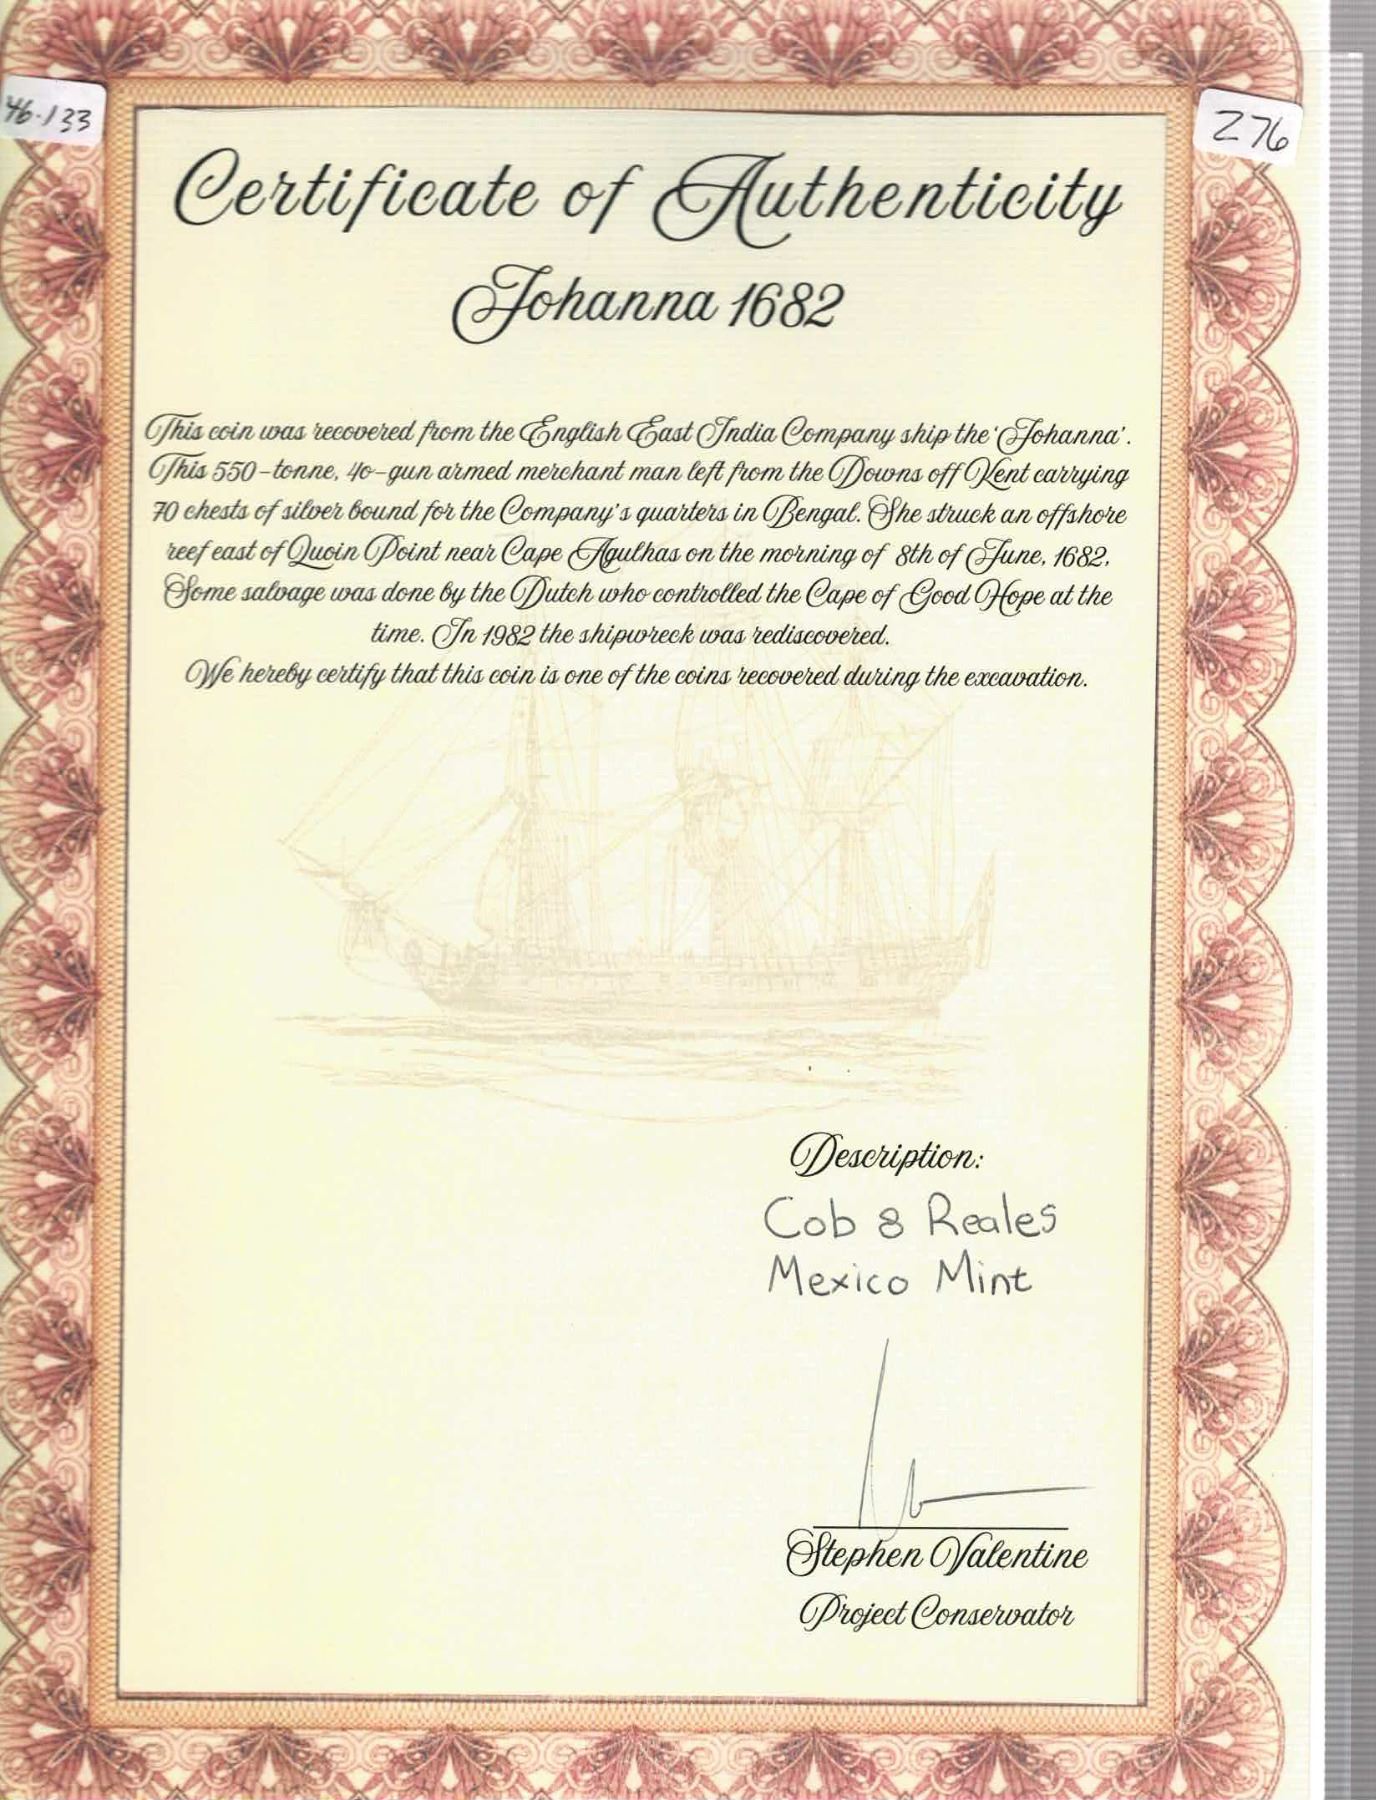 46.133
Z76
Certificate of Authenticity
Johanna 1682
This coin was recovered from the English East India Company ship the 'Johanna'.
This 550-tonne, 40-gun armed merchant man left from the Downs off Kent carrying
70 chests of silver bound for the Company's quarters in Bengal. She struck an offshore
reef east of Quoin Point near Cape Agulhas on the morning of 8th of June, 1682,
Some salvage was done by the Dutch who controlled the Cape of Good Hope at the
time. In 1982 the shipwreck was rediscovered.
We hereby certify that this coin is one of the coins recovered during the excavation.
Description:
Cob 8 Reales
Mexico Mint
Stephen Valentine
Project Conservator